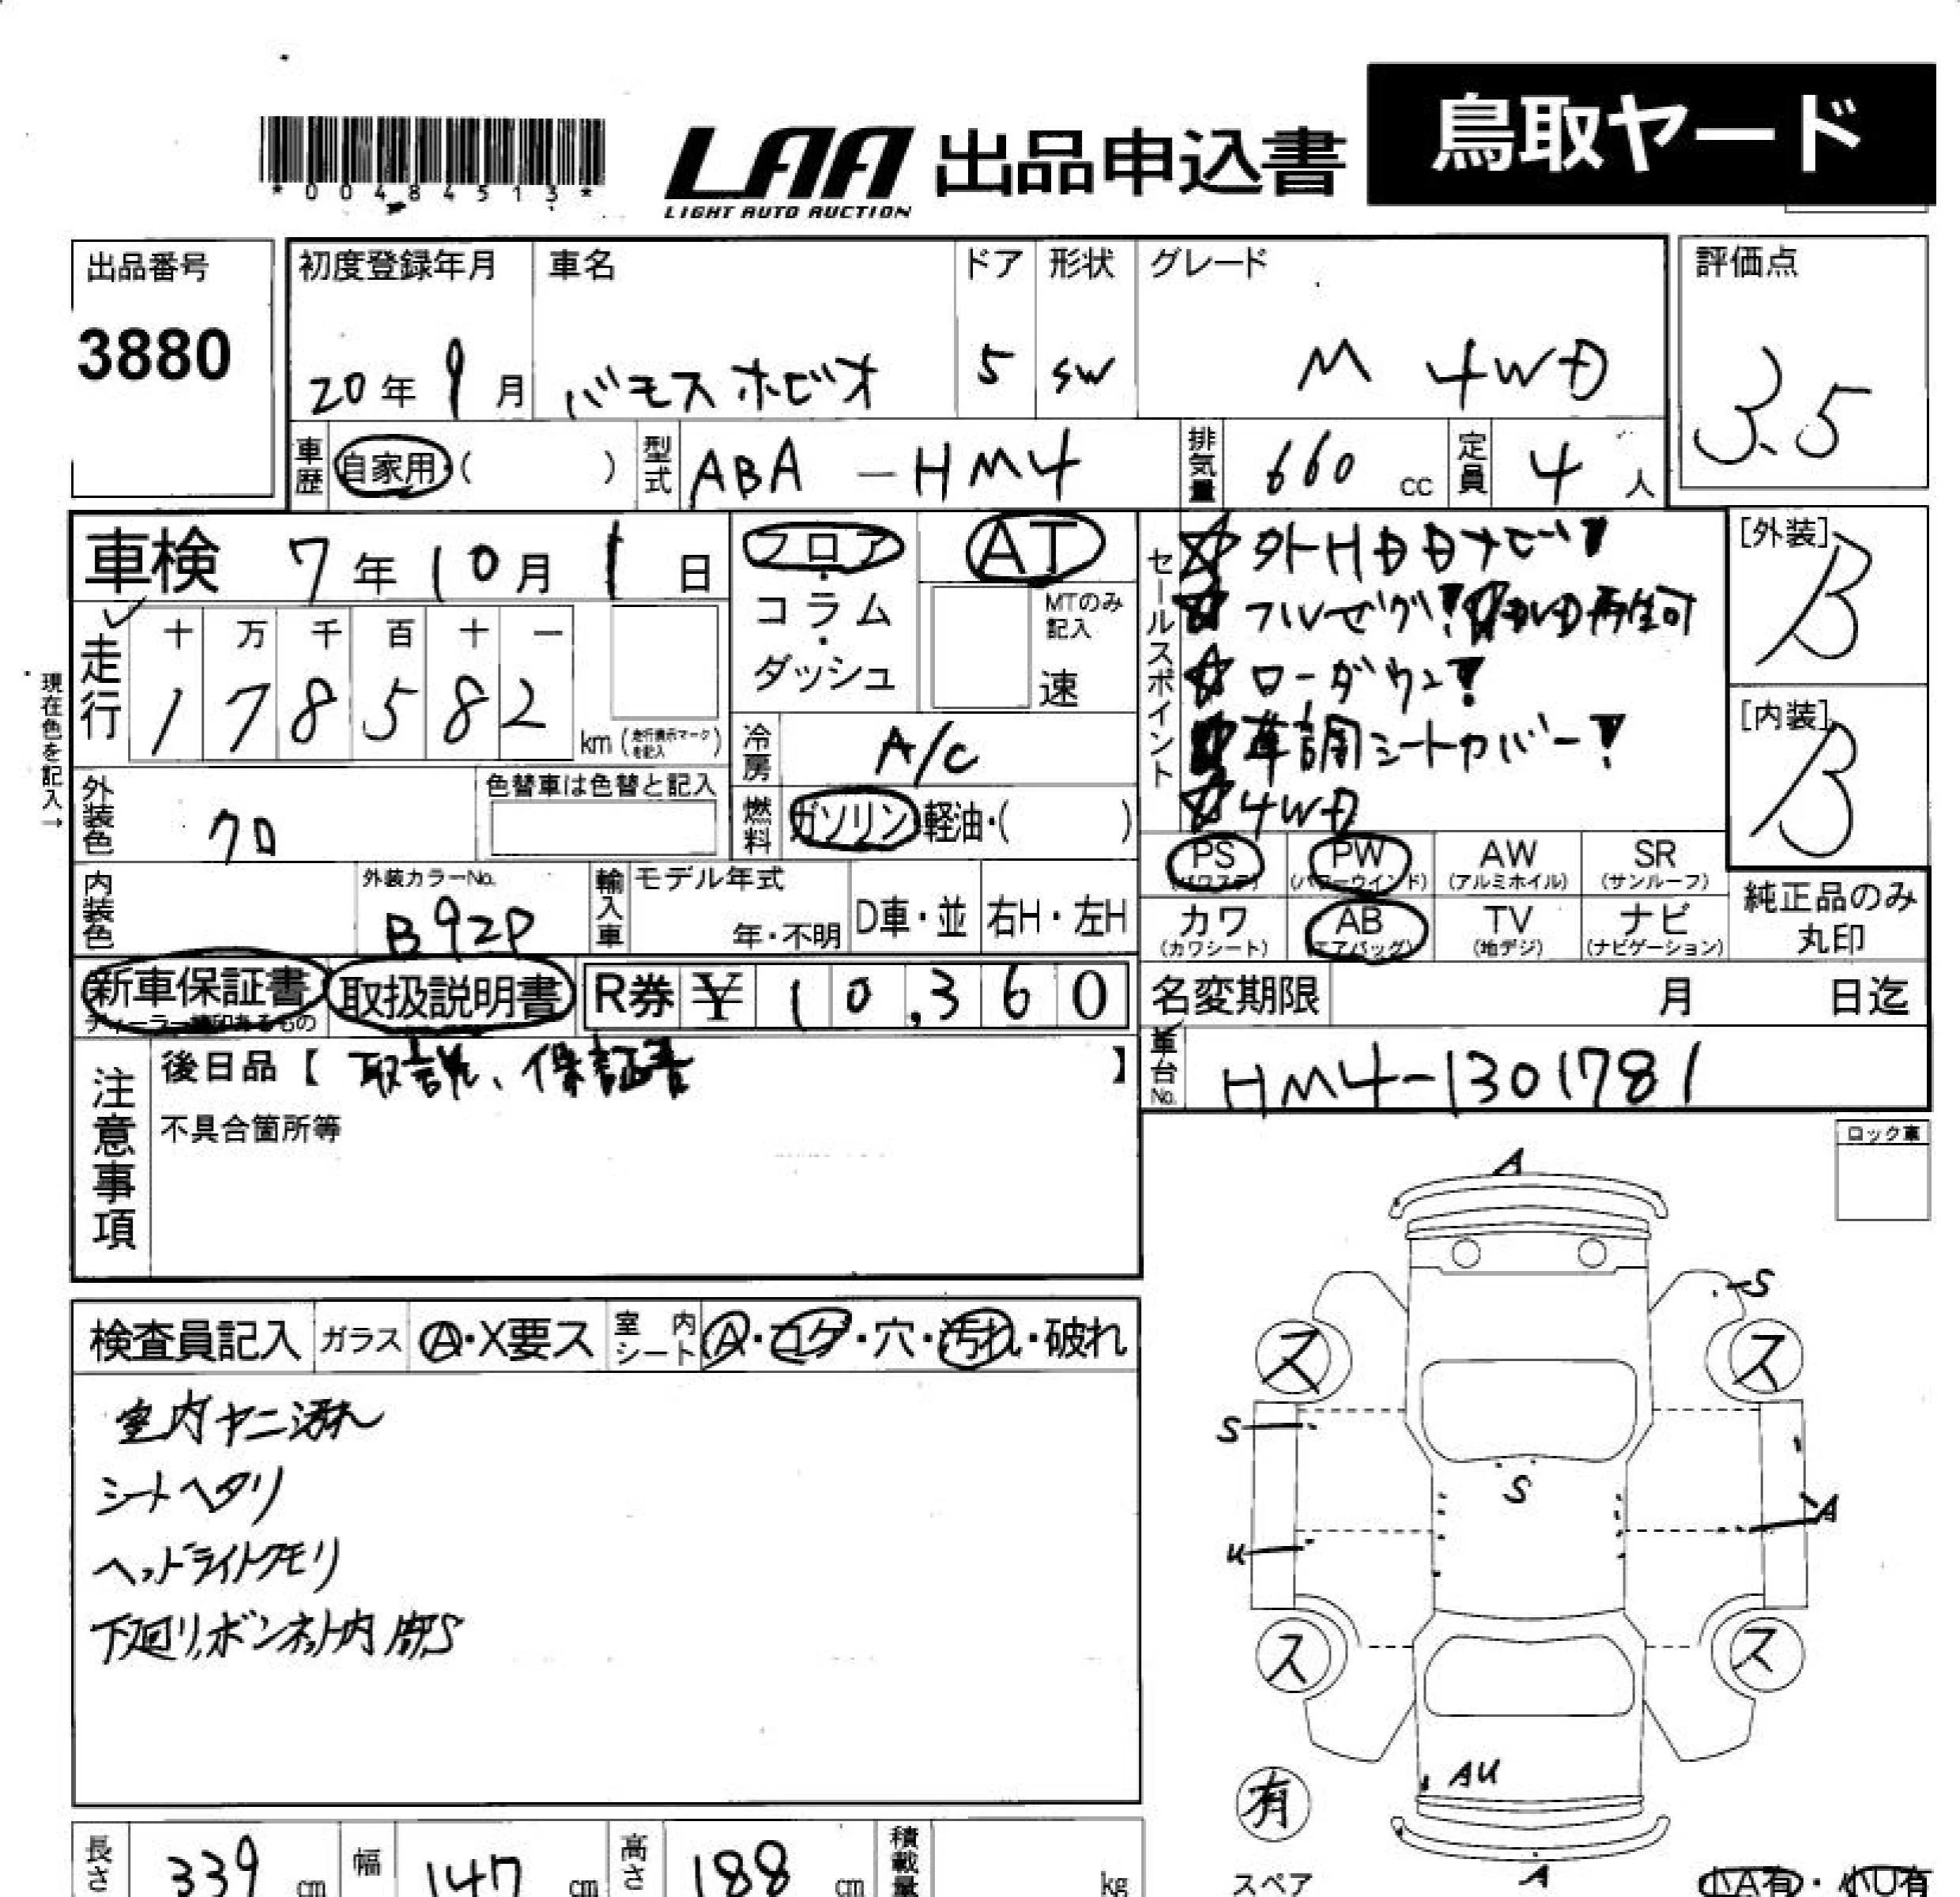 *00484513*
LAA
LIGHT AUTO AUCTION
出品申込書
鳥取ヤード
出品番号
3880
初度登録年月
20年9月
車名
バモスホビオ
ドア
5
形状
SW
グレード
M 4WD
評価点
3.5
車歴
自家用・( )
型式
ABA-HM4
排気量
660 cc
定員
4人
車検 7年10月1日
フロア・コラム・ダッシュ
AT
MTのみ記入
速
セールスポイント
☆外HDDナビ!
☆フルセグ! 再生可
☆ローダウン!
革調シートカバー!
☆4WD
[外装]
B
[内装]
B
現在色を記入→
走行
十万千百十一
178582
km (走行表示マークを記入)
冷房
A/C
外装色
クロ
色替車は色替と記入
燃料
ガソリン・軽油・( )
PS (パワステ)
PW (パワーウインド)
AW (アルミホイル)
SR (サンルーフ)
カワ (カワシート)
AB (エアバッグ)
TV (地デジ)
ナビ (ナビゲーション)
純正品のみ丸印
内装色
外装カラーNo.
B92P
輸入車
モデル年式
年・不明
D車・並
右H・左H
新車保証書
取扱説明書
R券 ¥10,360
名変期限 月 日迄
注意事項
後日品【取説、保証書】
不具合箇所等
車台No.
HM4-1301781
ロック車
検査員記入
ガラス
A・X要ス
室内シート
A・コゲ・穴・汚れ・破れ
室内ヤニ汚れ
シートヘタリ
ヘッドライトクモリ
下廻り、ボンネット内
A
S
ス
ス
S
S
A
U
ス
ス
AU
有
スペア
A
長さ
339 cm
幅
147 cm
高さ
188 cm
積載量
kg